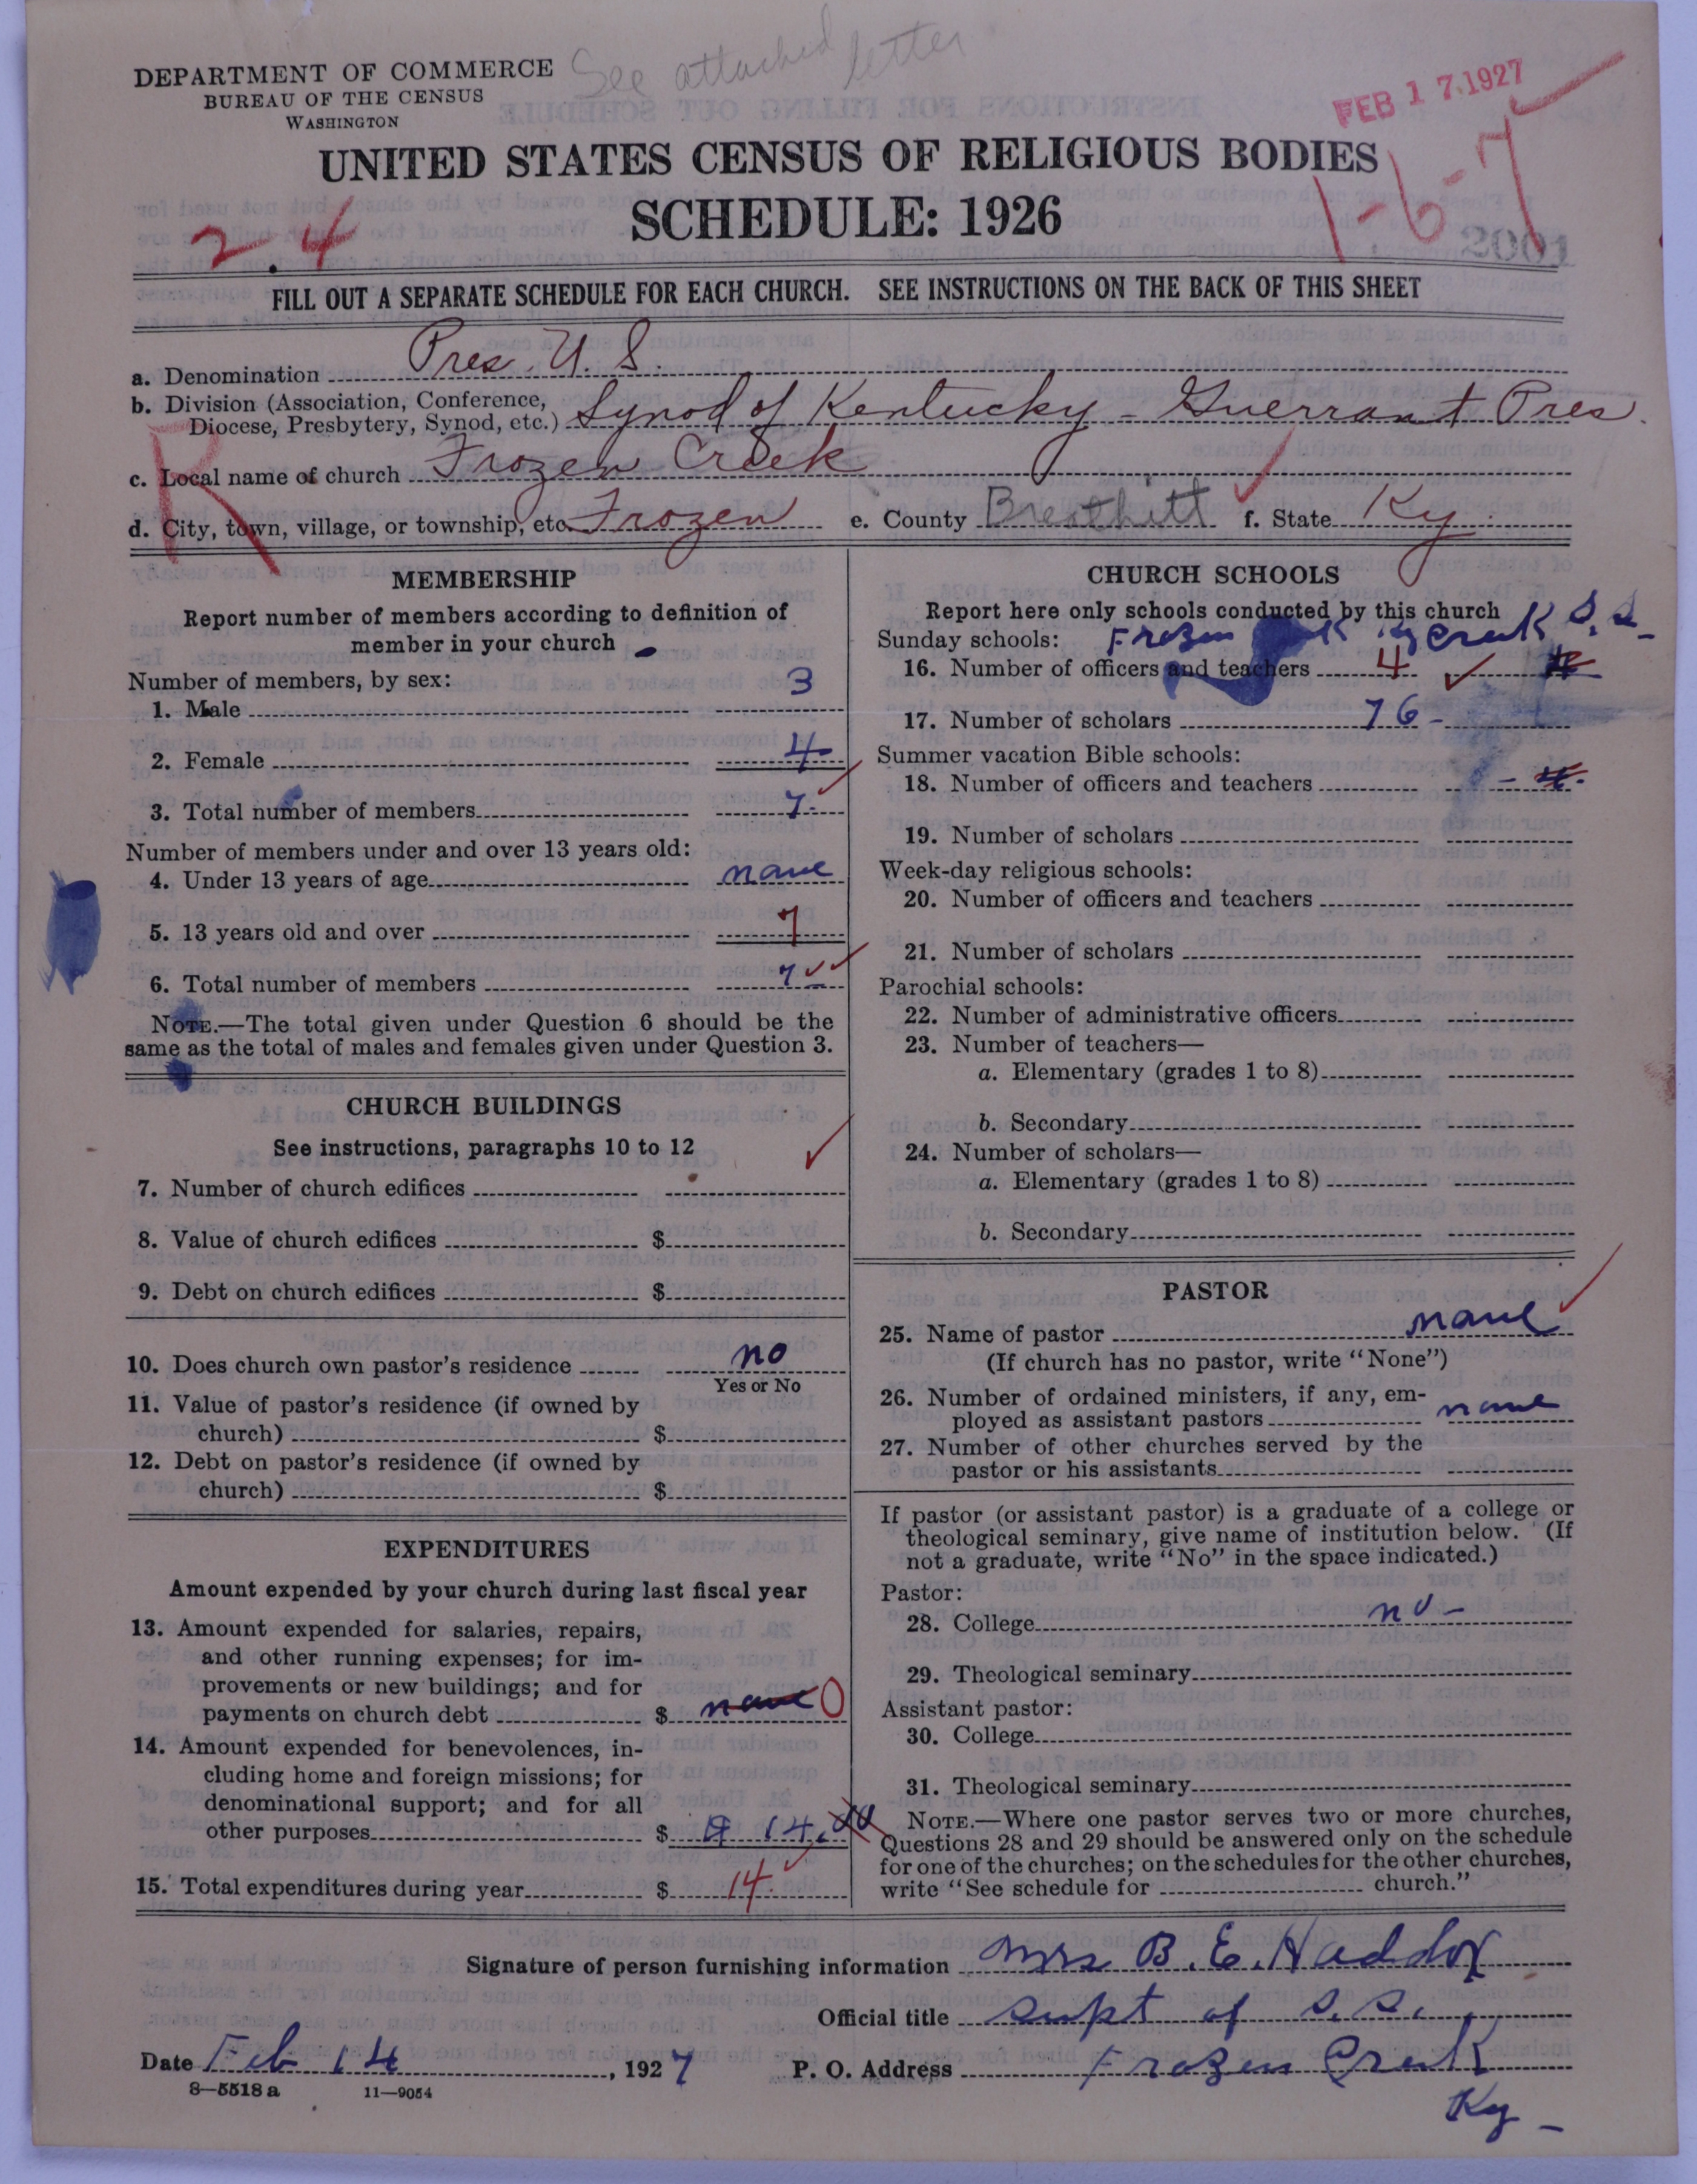 See attached letter
DEPARTMENT OF COMMERCE
BUREAU OF THE CENSUS
WASHINGTON
FEB 17 1927
UNITED STATES CENSUS OF RELIGIOUS BODIES
SCHEDULE: 1926
2.4
1-6-7
FILL OUT A SEPARATE SCHEDULE FOR EACH CHURCH. SEE INSTRUCTIONS ON THE BACK OF THIS SHEET
a. Denomination Pres. U.S.
b. Division (Association, Conference, Diocese, Presbytery, Synod, etc.) Synod of Kentucky - Guerrant Pres.
c. Local name of church Frozen Creek
R
d. City, town, village, or township, etc. Frozen e. County Breathitt f. State Ky.
MEMBERSHIP
Report number of members according to definition of
member in your church
Number of members, by sex:
1. Male 3
2. Female 4
3. Total number of members 7
Number of members under and over 13 years old:
4. Under 13 years of age none
5. 13 years old and over 7
6. Total number of members 7
NOTE.—The total given under Question 6 should be the
same as the total of males and females given under Question 3.
CHURCH BUILDINGS
See instructions, paragraphs 10 to 12
7. Number of church edifices
8. Value of church edifices $
9. Debt on church edifices $
10. Does church own pastor's residence no
Yes or No
11. Value of pastor's residence (if owned by
church) $
12. Debt on pastor's residence (if owned by
church) $
EXPENDITURES
Amount expended by your church during last fiscal year
13. Amount expended for salaries, repairs,
and other running expenses; for im-
provements or new buildings; and for
payments on church debt $ none 0
14. Amount expended for benevolences, in-
cluding home and foreign missions; for
denominational support; and for all
other purposes $ 14.00
15. Total expenditures during year $ 14.
CHURCH SCHOOLS
Report here only schools conducted by this church
Sunday schools: Frozen Creek S.S.
16. Number of officers and teachers 4
17. Number of scholars 76
Summer vacation Bible schools:
18. Number of officers and teachers
19. Number of scholars
Week-day religious schools:
20. Number of officers and teachers
21. Number of scholars
Parochial schools:
22. Number of administrative officers
23. Number of teachers—
a. Elementary (grades 1 to 8)
b. Secondary
24. Number of scholars—
a. Elementary (grades 1 to 8)
b. Secondary
PASTOR
25. Name of pastor none
(If church has no pastor, write "None")
26. Number of ordained ministers, if any, em-
ployed as assistant pastors none
27. Number of other churches served by the
pastor or his assistants
If pastor (or assistant pastor) is a graduate of a college or
theological seminary, give name of institution below. (If
not a graduate, write "No" in the space indicated.)
Pastor:
28. College no -
29. Theological seminary
Assistant pastor:
30. College
31. Theological seminary
NOTE.—Where one pastor serves two or more churches,
Questions 28 and 29 should be answered only on the schedule
for one of the churches; on the schedules for the other churches,
write "See schedule for church."
Signature of person furnishing information Mrs B. E. Haddox
Official title Supt of S.S.
Date Feb 14, 1927 P. O. Address Frozen Creek
Ky -
8—5518 a 11—9054